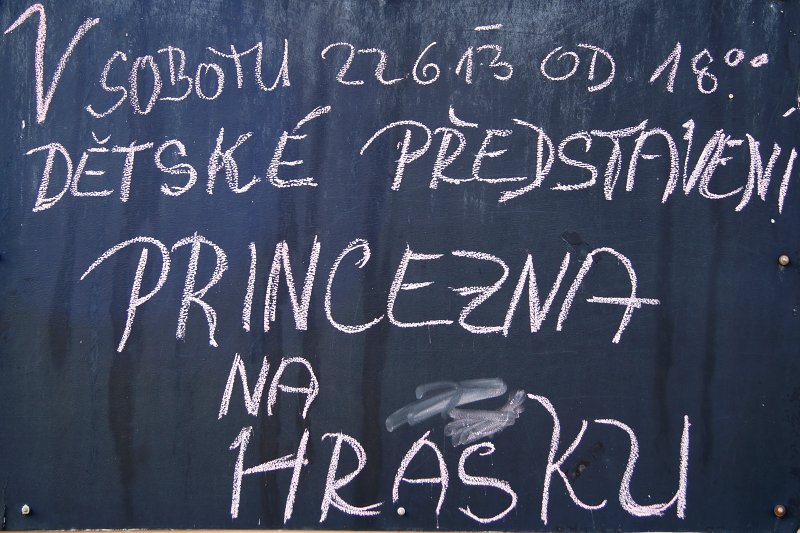 V SOBOTU 22 6 13 OD 18°°
DĚTSKÉ PŘEDSTAVENÍ
PRINCEZNA
NA
HRASKU